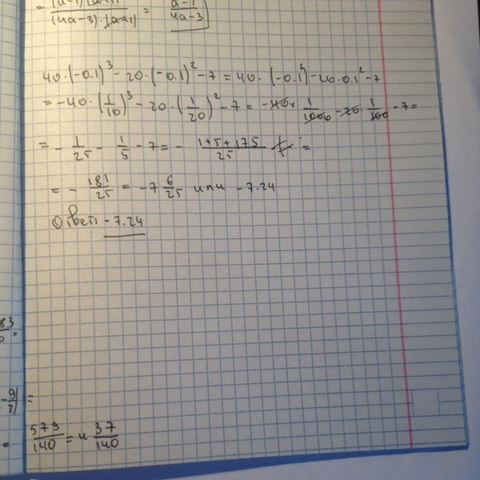 (4a-3)·(a+1) = a-1/4a-3
40·(-0.1)³-20·(-0.1)²-7=40·(-0.1)³-20·0.1²-7
=-40·(1/10)³-20·(1/20)²-7=-40·1/1000-20·1/100-7=
=-1/25-1/5-7=-1+5+175/25=
=-181/25=-7 6/25 или -7.24
Ответ: -7.24
579/140=4 37/140